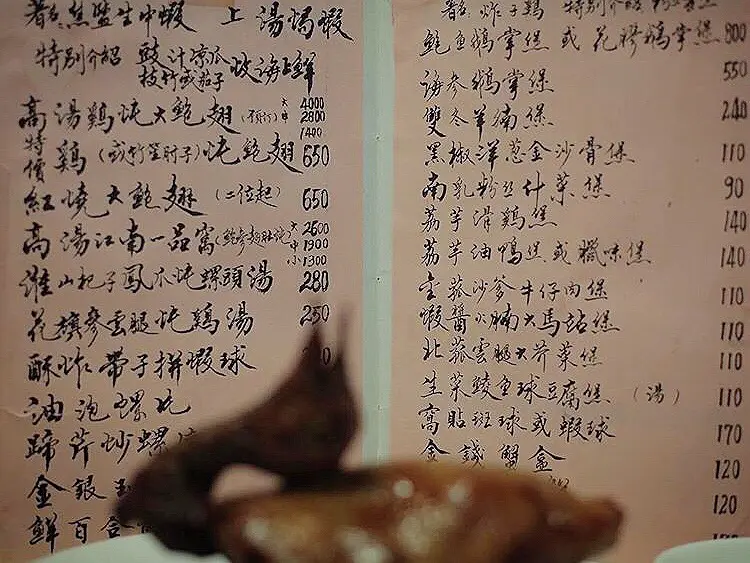 生中蝦 上湯焗蝦
特別介紹 豉汁涼瓜
枝竹或茄子 海上鮮
高湯鷄炖大鮑翅 大 4000
中 2800
1400
特價 鷄(或竹笙肘子)炖鮑翅 650
紅燒大鮑翅(二位起) 650
高湯江南一品窩 大 2600
中 1900
小 1300
淮山杞子鳳爪炖螺頭湯 280
花旗參雲腿炖鷄湯 250
酥炸帶子拼蝦球
油泡螺片
蹄芹炒螺
金銀
鮮百合
炸子鷄 特別介紹
鮑魚鵝掌煲 或 花膠鵝掌煲 800
海參鵝掌煲 550
雙冬羊腩煲 240
黑椒洋葱金沙骨煲 110
南乳粉絲什菜煲 90
荔芋滑鷄煲 140
荔芋油鴨煲或臘味煲 140
金菰沙爹牛仔肉煲 110
蝦醬火腩大馬站煲 110
北菰雲腿大芥菜煲 110
生菜鯪魚球豆腐煲(湯) 110
窩貼斑球或蝦球 170
金錢蟹盒 120
120